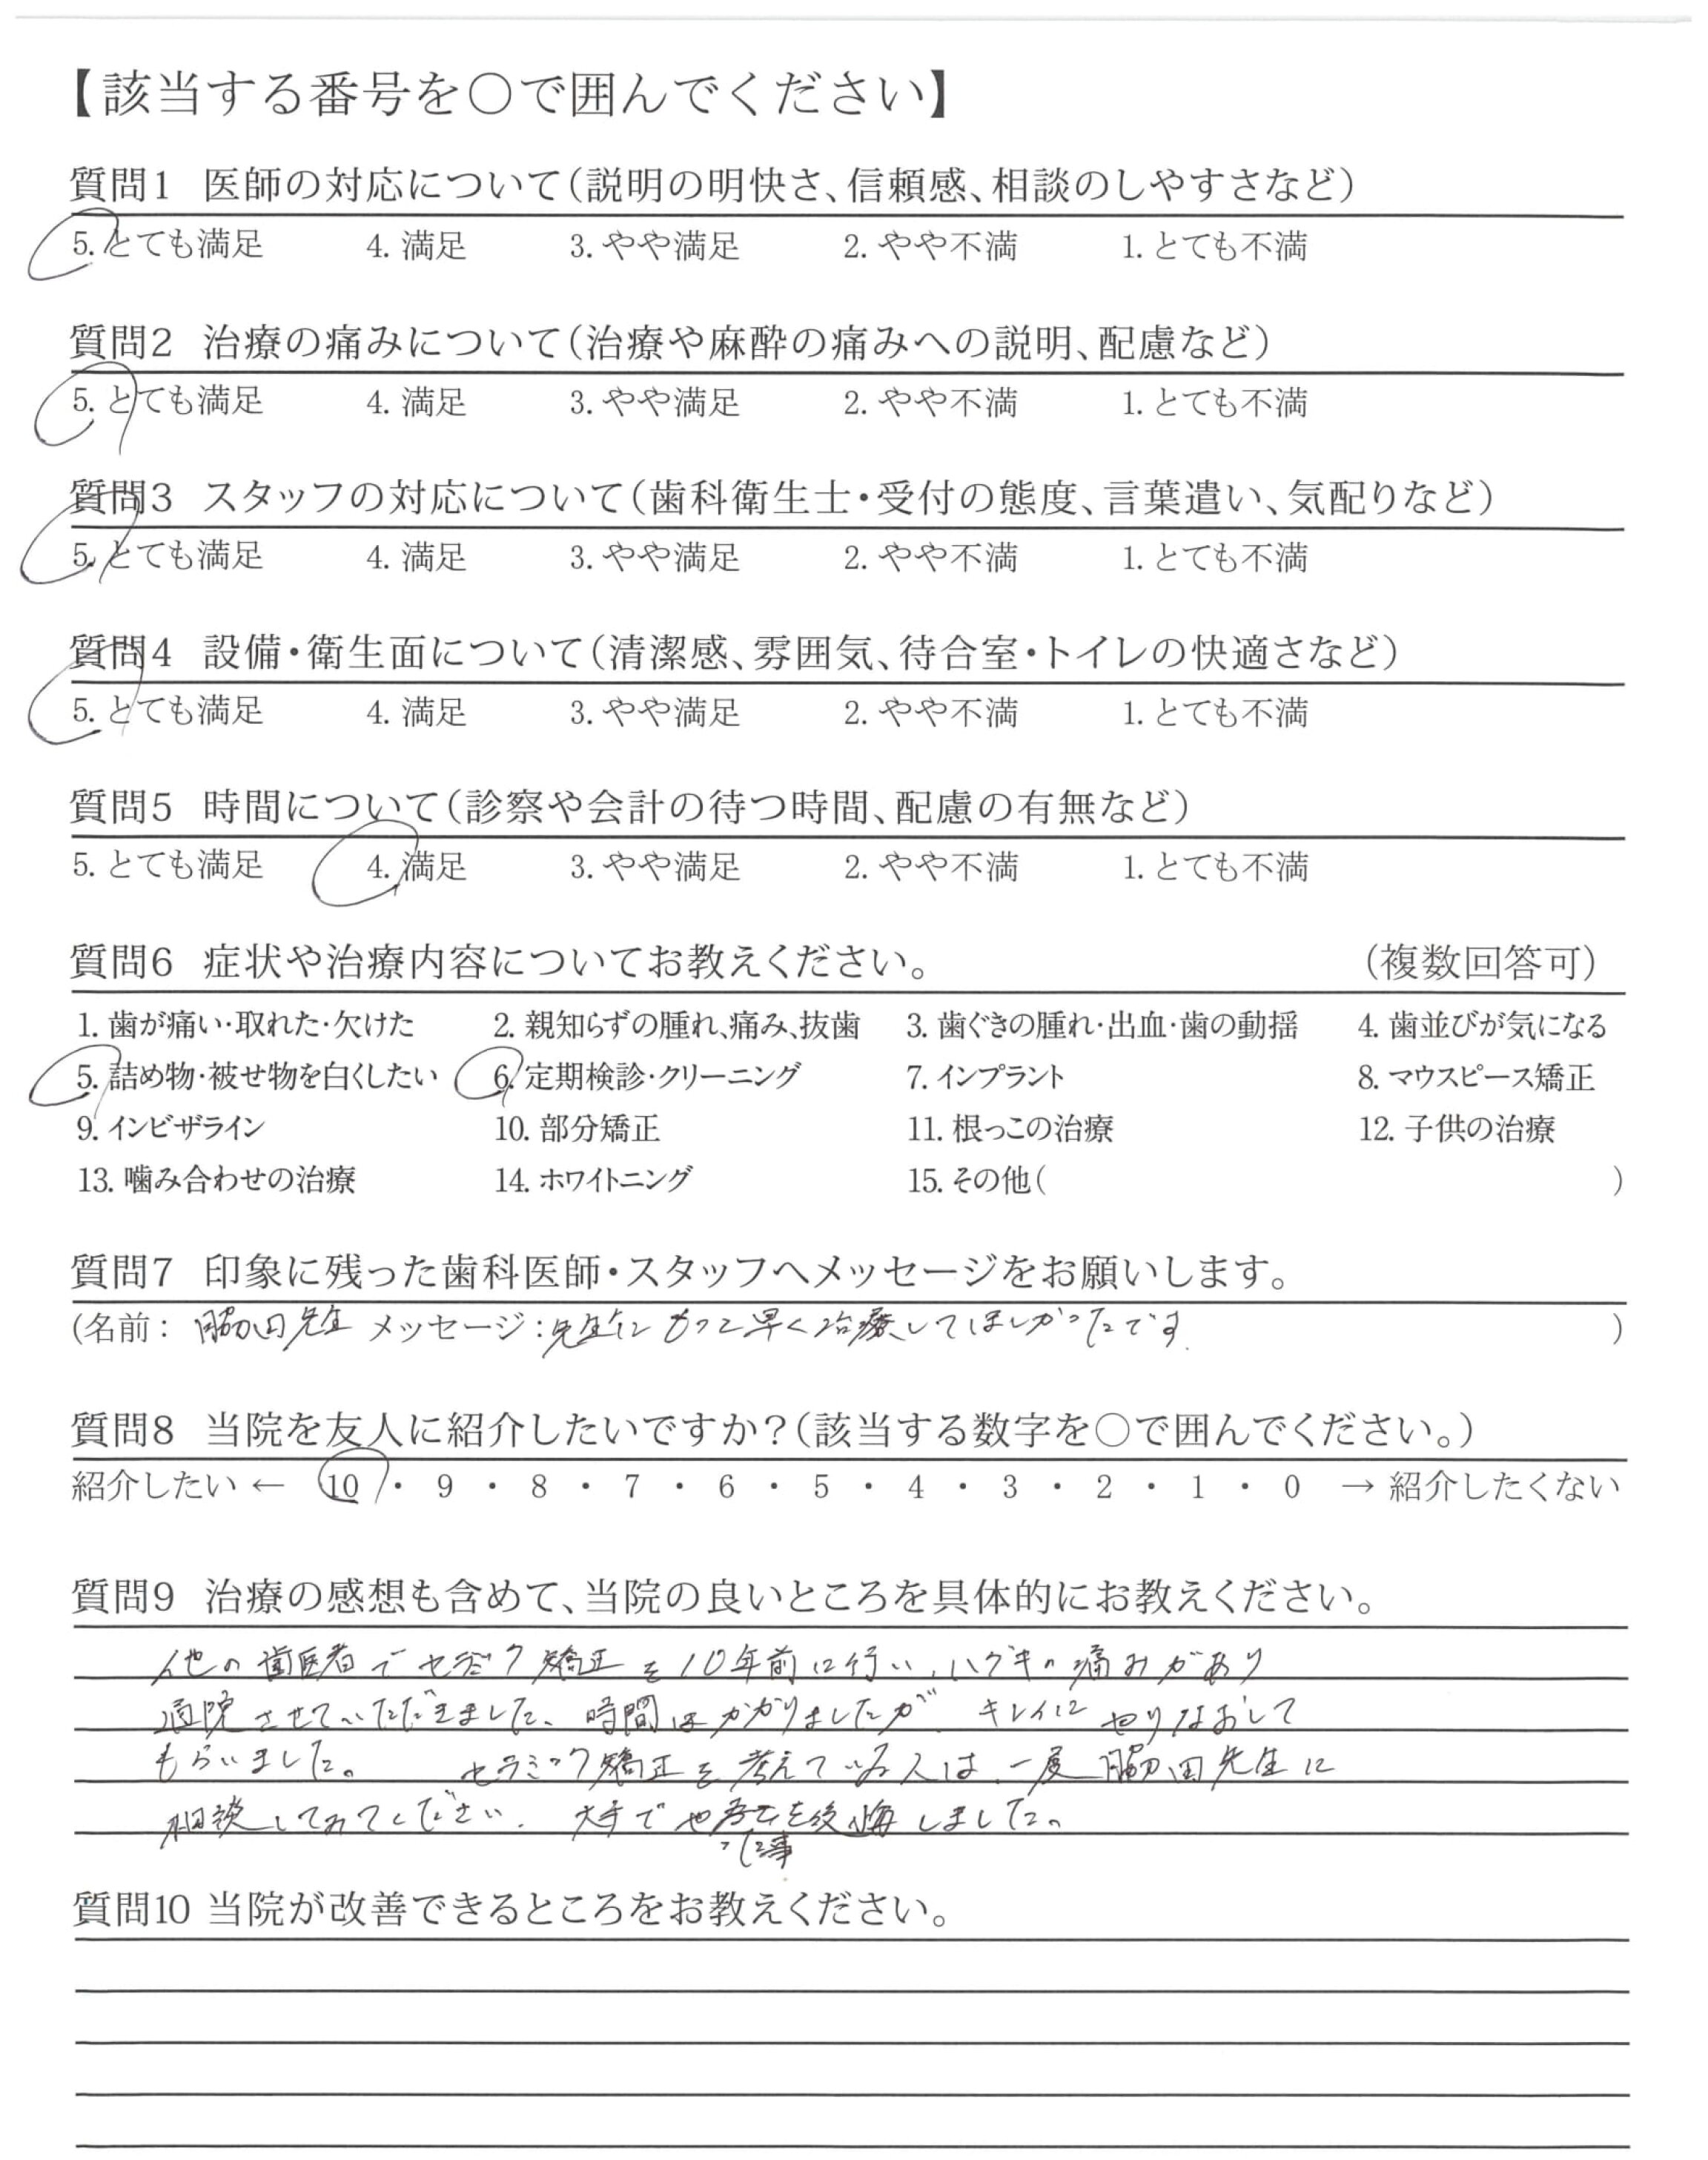 【該当する番号を〇で囲んでください】
質問1 医師の対応について（説明の明快さ、信頼感、相談のしやすさなど）
5. とても満足 4. 満足 3. やや満足 2. やや不満 1. とても不満
質問2 治療の痛みについて（治療や麻酔の痛みへの説明、配慮など）
5. とても満足 4. 満足 3. やや満足 2. やや不満 1. とても不満
質問3 スタッフの対応について（歯科衛生士・受付の態度、言葉遣い、気配りなど）
5. とても満足 4. 満足 3. やや満足 2. やや不満 1. とても不満
質問4 設備・衛生面について（清潔感、雰囲気、待合室・トイレの快適さなど）
5. とても満足 4. 満足 3. やや満足 2. やや不満 1. とても不満
質問5 時間について（診察や会計の待つ時間、配慮の有無など）
5. とても満足 4. 満足 3. やや満足 2. やや不満 1. とても不満
質問6 症状や治療内容についてお教えください。 （複数回答可）
1. 歯が痛い・取れた・欠けた 2. 親知らずの腫れ、痛み、抜歯 3. 歯ぐきの腫れ・出血・歯の動揺 4. 歯並びが気になる
5. 詰め物・被せ物を白くしたい 6. 定期検診・クリーニング 7. インプラント 8. マウスピース矯正
9. インビザライン 10. 部分矯正 11. 根っこの治療 12. 子供の治療
13. 噛み合わせの治療 14. ホワイトニング 15. その他（ ）
質問7 印象に残った歯科医師・スタッフへメッセージをお願いします。
（名前： 脇田先生 メッセージ：先生に もっと早く治療してほしかったです. ）
質問8 当院を友人に紹介したいですか？（該当する数字を〇で囲んでください。）
紹介したい ← 10 ・ 9 ・ 8 ・ 7 ・ 6 ・ 5 ・ 4 ・ 3 ・ 2 ・ 1 ・ 0 → 紹介したくない
質問9 治療の感想も含めて、当院の良いところを具体的にお教えください。
他の歯医者でセラミック矯正を10年前に行い、ハグキの痛みがあり
通院させていただきました、時間はかかりましたが、キレイに やりなおして
もらいました。 セラミック矯正を考えている人は、一度 脇田先生に
相談してみてください. 大手で や を後悔しました。
った事
質問10 当院が改善できるところをお教えください。